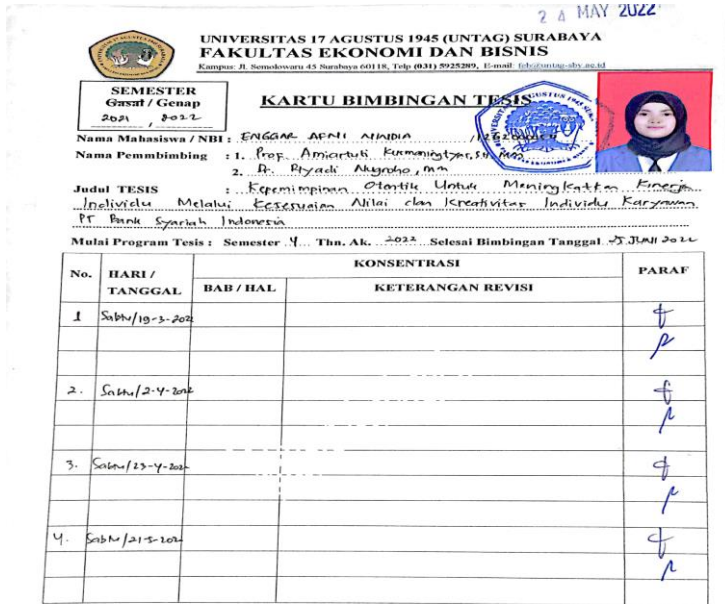 2 4 MAY 2022
UNIVERSITAS 17 AGUSTUS 1945 (UNTAG) SURABAYA
FAKULTAS EKONOMI DAN BISNIS
Kampus: Jl. Semolowaru 45 Surabaya 60118, Telp (031) 5925289, E-mail: feb@untag-sby.ac.id
SEMESTER
Gasal / Genap
2021 , 2022
KARTU BIMBINGAN TESIS
Nama Mahasiswa / NBI : ENGGAR APNI
Nama Pemmbimbing : 1. Prof. Amiartuti Kusmaningtyas, SH, MM
2. Dr. Riyadi Nugroho, MM
Judul TESIS : Kepemimpinan Otentik Untuk Meningkatkan Kinerja
Individu Melalui Kesesuaian Nilai dan Kreativitas Individu Karyawan
PT Bank Syariah Indonesia
Mulai Program Tesis : Semester 4 Thn. Ak. 2022 Selesai Bimbingan Tanggal 25 JUNI 2022
No. HARI / TANGGAL KONSENTRASI PARAF
BAB / HAL KETERANGAN REVISI
1 Sabtu/19-3-202
2. Sabtu/2-4-2022
3. Sabtu/23-4-202
4. Sabtu/21-5-202